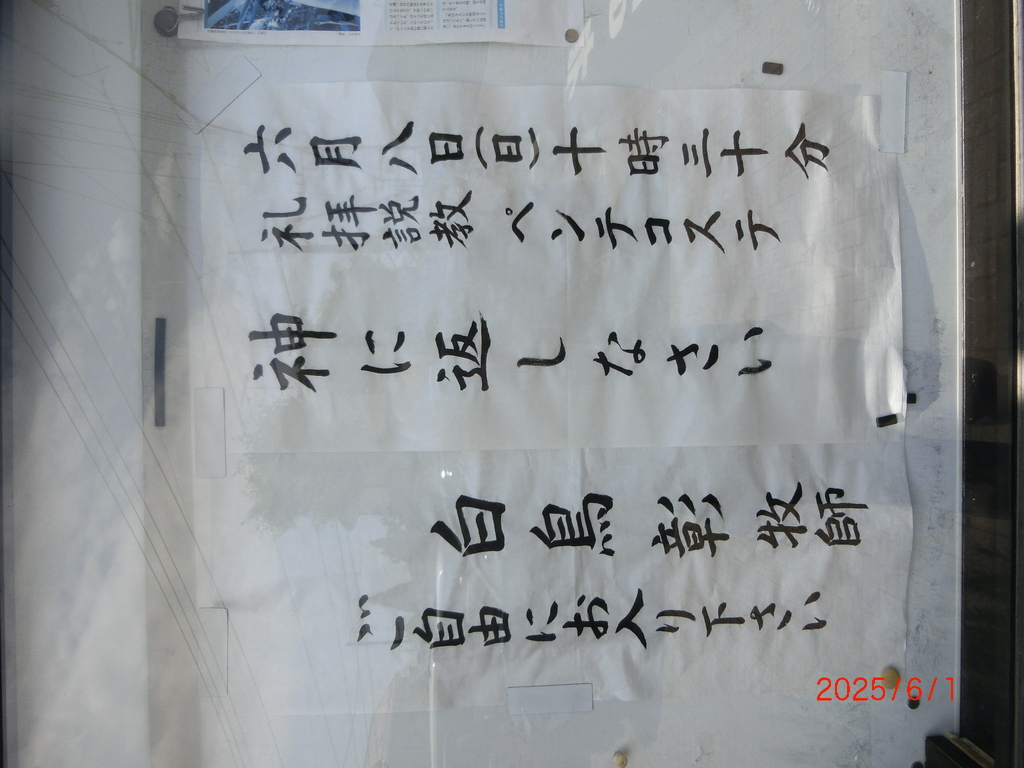 六月八日(日)十時三十分
礼拝説教 ペンテコステ
神に返しなさい
白鳥 彰 牧師
ご自由にお入り下さい
2025/6/1